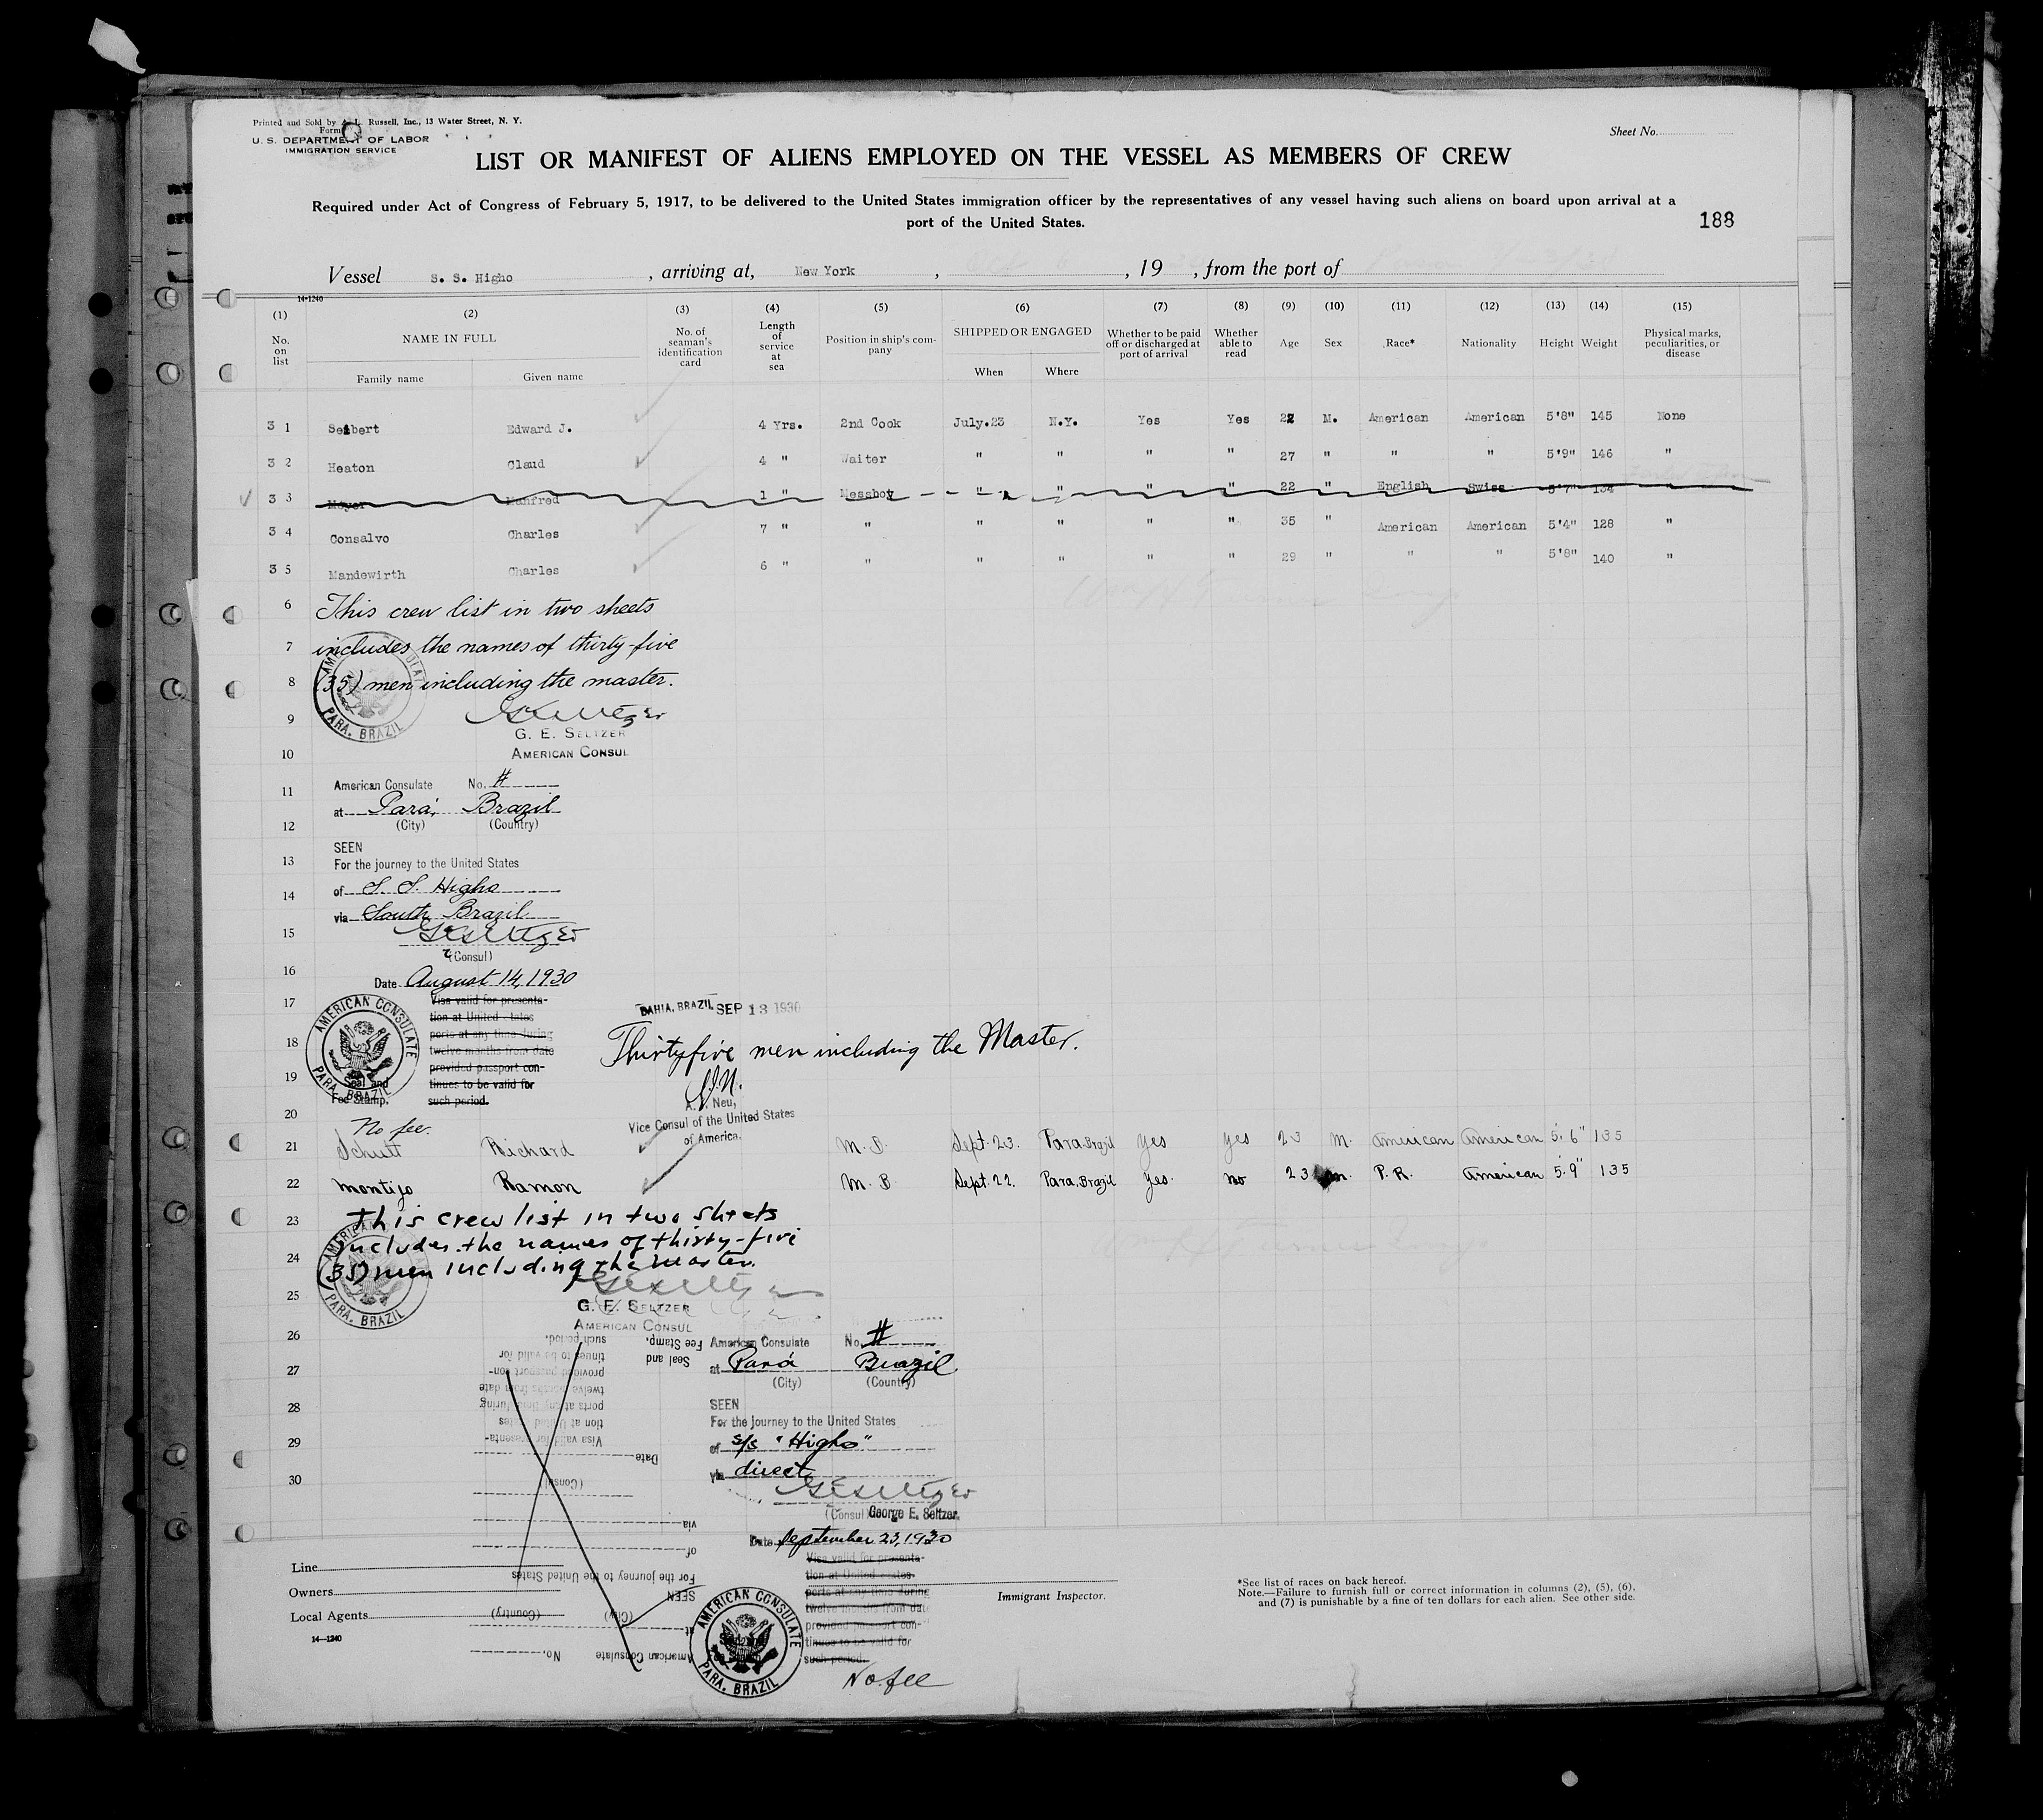 Printed and Sold by A. L. Russell, Inc., 13 Water Street, N. Y.
Form
U. S. DEPARTMENT OF LABOR
IMMIGRATION SERVICE
Sheet No.
LIST OR MANIFEST OF ALIENS EMPLOYED ON THE VESSEL AS MEMBERS OF CREW
Required under Act of Congress of February 5, 1917, to be delivered to the United States immigration officer by the representatives of any vessel having such aliens on board upon arrival at a
port of the United States.
188
Vessel S. S. Higho , arriving at, New York , , 19 , from the port of
14-1240
(1) (2) (3) (4) (5) (6) (7) (8) (9) (10) (11) (12) (13) (14) (15)
No. on list NAME IN FULL Family name Given name No. of seaman's identification card Length of service at sea Position in ship's company SHIPPED OR ENGAGED When Where Whether to be paid off or discharged at port of arrival Whether able to read Age Sex Race* Nationality Height Weight Physical marks, peculiarities, or disease
3 1 Seibert Edward J. 4 Yrs. 2nd Cook July.23 N.Y. Yes Yes 22 M. American American 5'8" 145 None
3 2 Heaton Claud 4 " Waiter " " " " 27 " " " 5'9" 146 "
3 3 Meyer Manfred 1 " Messboy " " " " 22 " English Swiss 5'7" 134
3 4 Consalvo Charles 7 " " " " " " 35 " American American 5'4" 128 "
3 5 Mandewirth Charles 6 " " " " " " 29 " " " 5'8" 140 "
6 This crew list in two sheets
7 includes the names of thirty-five
8 (35) men including the master.
AMERICAN CONSULATE
PARA, BRAZIL
9
G. E. SELTZER
10 AMERICAN CONSUL
11 American Consulate No. #
at Pará, Brazil
12 (City) (Country)
SEEN
13 For the journey to the United States
14 of S. S. Higho
via South Brazil
15 GESeltzer
(Consul)
16 Date August 14, 1930
17 Visa valid for presenta-
tion at United States
ports at any time during
18 twelve months from date
provided passport con-
19 tinues to be valid for
such period.
AMERICAN CONSULATE
PARA, BRAZIL
Seal and
Fee Stamp.
BAHIA, BRAZIL SEP 13 1930
Thirtyfive men including the Master.
Neu,
Vice Consul of the United States
of America.
20 No fee.
21 Schutt Richard M. B. Sept. 23. Para Brazil yes yes 23 M. American American 5'.6" 135
22 Montijo Ramon M. B Sept. 22. Para, Brazil yes. no 23 m. P. R. American 5'.9" 135
23 This crew list in two sheets
24 includes the names of thirty-five
(35) men including the master.
AMERICAN CONSULATE
PARA, BRAZIL
25 GESeltzer
G. E. SELTZER
AMERICAN CONSUL
26 American Consulate No. #
27 at Pará Brazil
(City) (Country)
28 SEEN
For the journey to the United States
29 of S/S "Higho"
30 via direct
GESeltzer
(Consul) George E. Seltzer.
Date September 23, 1930
Visa valid for presenta-
tion at United States
ports at any time during
twelve months from date
provided passport con-
tinues to be valid for
such period.
AMERICAN CONSULATE
PARA, BRAZIL
No fee
American Consulate No.
at
(City) (Country)
SEEN
For the journey to the United States
of
via
(Consul)
Date
Visa valid for presenta-
tion at United States
ports at any time during
twelve months from date
provided passport con-
tinues to be valid for
such period.
Seal and
Fee Stamp.
Line
Owners
Local Agents
14—1240
Immigrant Inspector.
*See list of races on back hereof.
Note.—Failure to furnish full or correct information in columns (2), (5), (6),
and (7) is punishable by a fine of ten dollars for each alien. See other side.